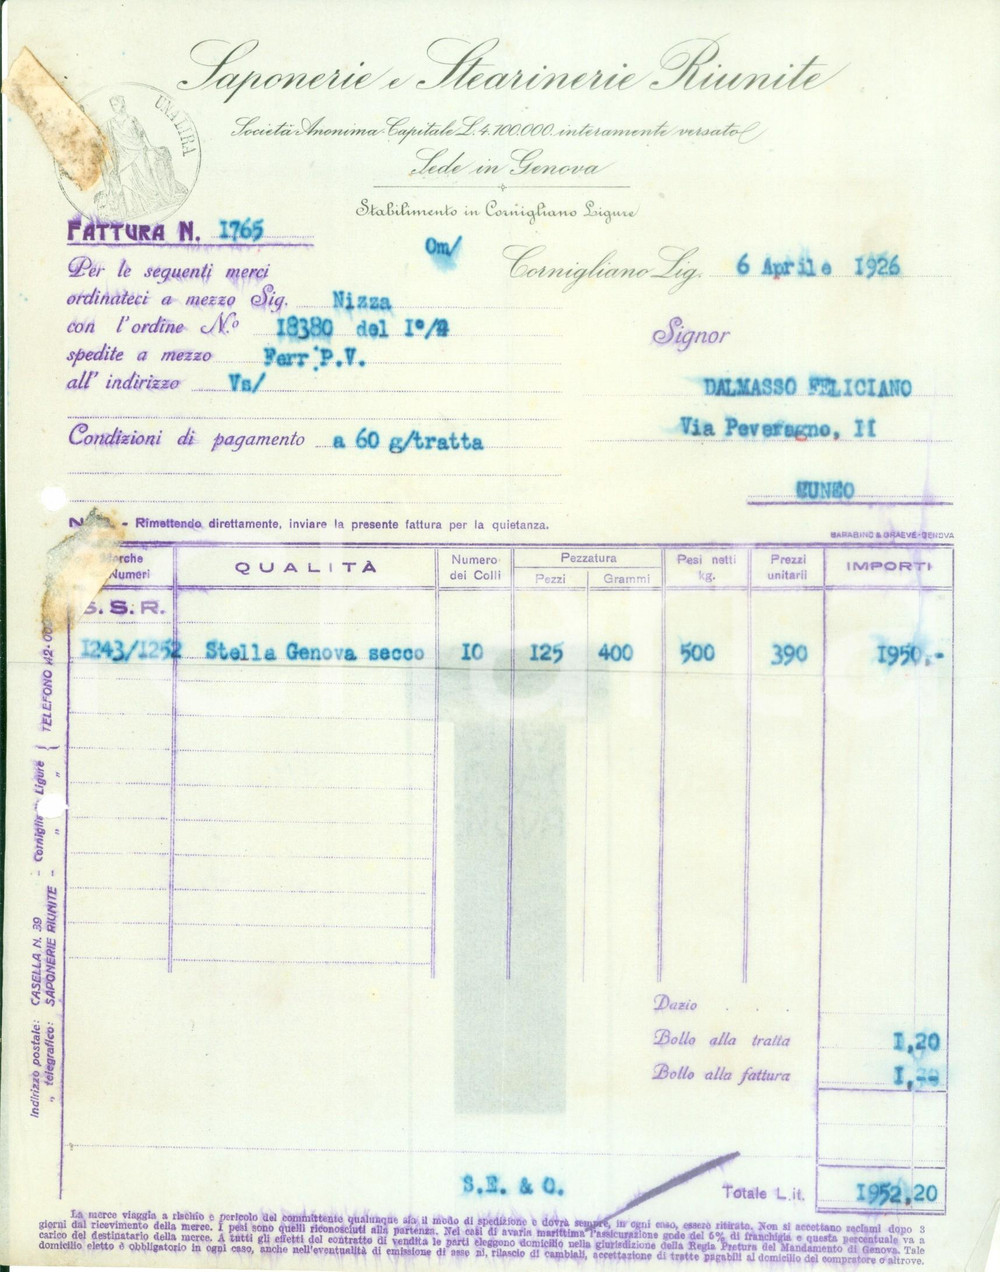 Saponerie e Stearinerie Riunite
Società Anonima-Capitale L. 4.100.000 interamente versato
Sede in Genova
Stabilimento in Cornigliano Ligure
UNA LIRA
FATTURA N. 1765
Om/
Cornigliano Lig. 6 Aprile 1926
Per le seguenti merci
ordinateci a mezzo Sig. Nizza
con l'ordine N.º 18380 del I°/4
spedite a mezzo Ferr P.V.
all' indirizzo Vs/
Signor
DALMASSO FELICIANO
Via Peveragno, II
CUNEO
Condizioni di pagamento a 60 g/tratta
- Rimettendo direttamente, inviare la presente fattura per la quietanza.
BARABINO & GRAEVE-GENOVA
Marche Numeri QUALITÀ Numero dei Colli Pezzatura Pezzi Grammi Pesi netti kg. Prezzi unitarii IMPORTI
S. S. R.
1243/1252 Stella Genova secco 10 125 400 500 390 1950.-
Dazio
Bollo alla tratta 1,20
Bollo alla fattura
S.E. & O.
Totale Lit. 1952,20
Indirizzo postale: CASELLA N. 39 - Cornigliano Ligure
" telegrafico: SAPONERIE RIUNITE - " "
TELEFONO
La merce viaggia a rischio e pericolo del committente qualunque sia il modo di spedizione e dovrà sempre, in ogni caso, essere ritirata. Non si accettano reclami dopo 3
giorni dal ricevimento della merce. I pesi sono quelli riconosciuti alla partenza. Nel casi di avaria marittima l'assicurazione gode del 5% di franchigia e questa percentuale va a
carico del destinatario della merce. A tutti gli effetti del contratto di vendita le parti eleggono domicilio nella giurisdizione della Regia Pretura del Mandamento di Genova. Tale
domicilio eletto è obbligatorio in ogni caso, anche nell'eventualità di emissione di asse ni, rilascio di cambiali, accettazione di tratte pagabili al domicilio del compratore o altrove.